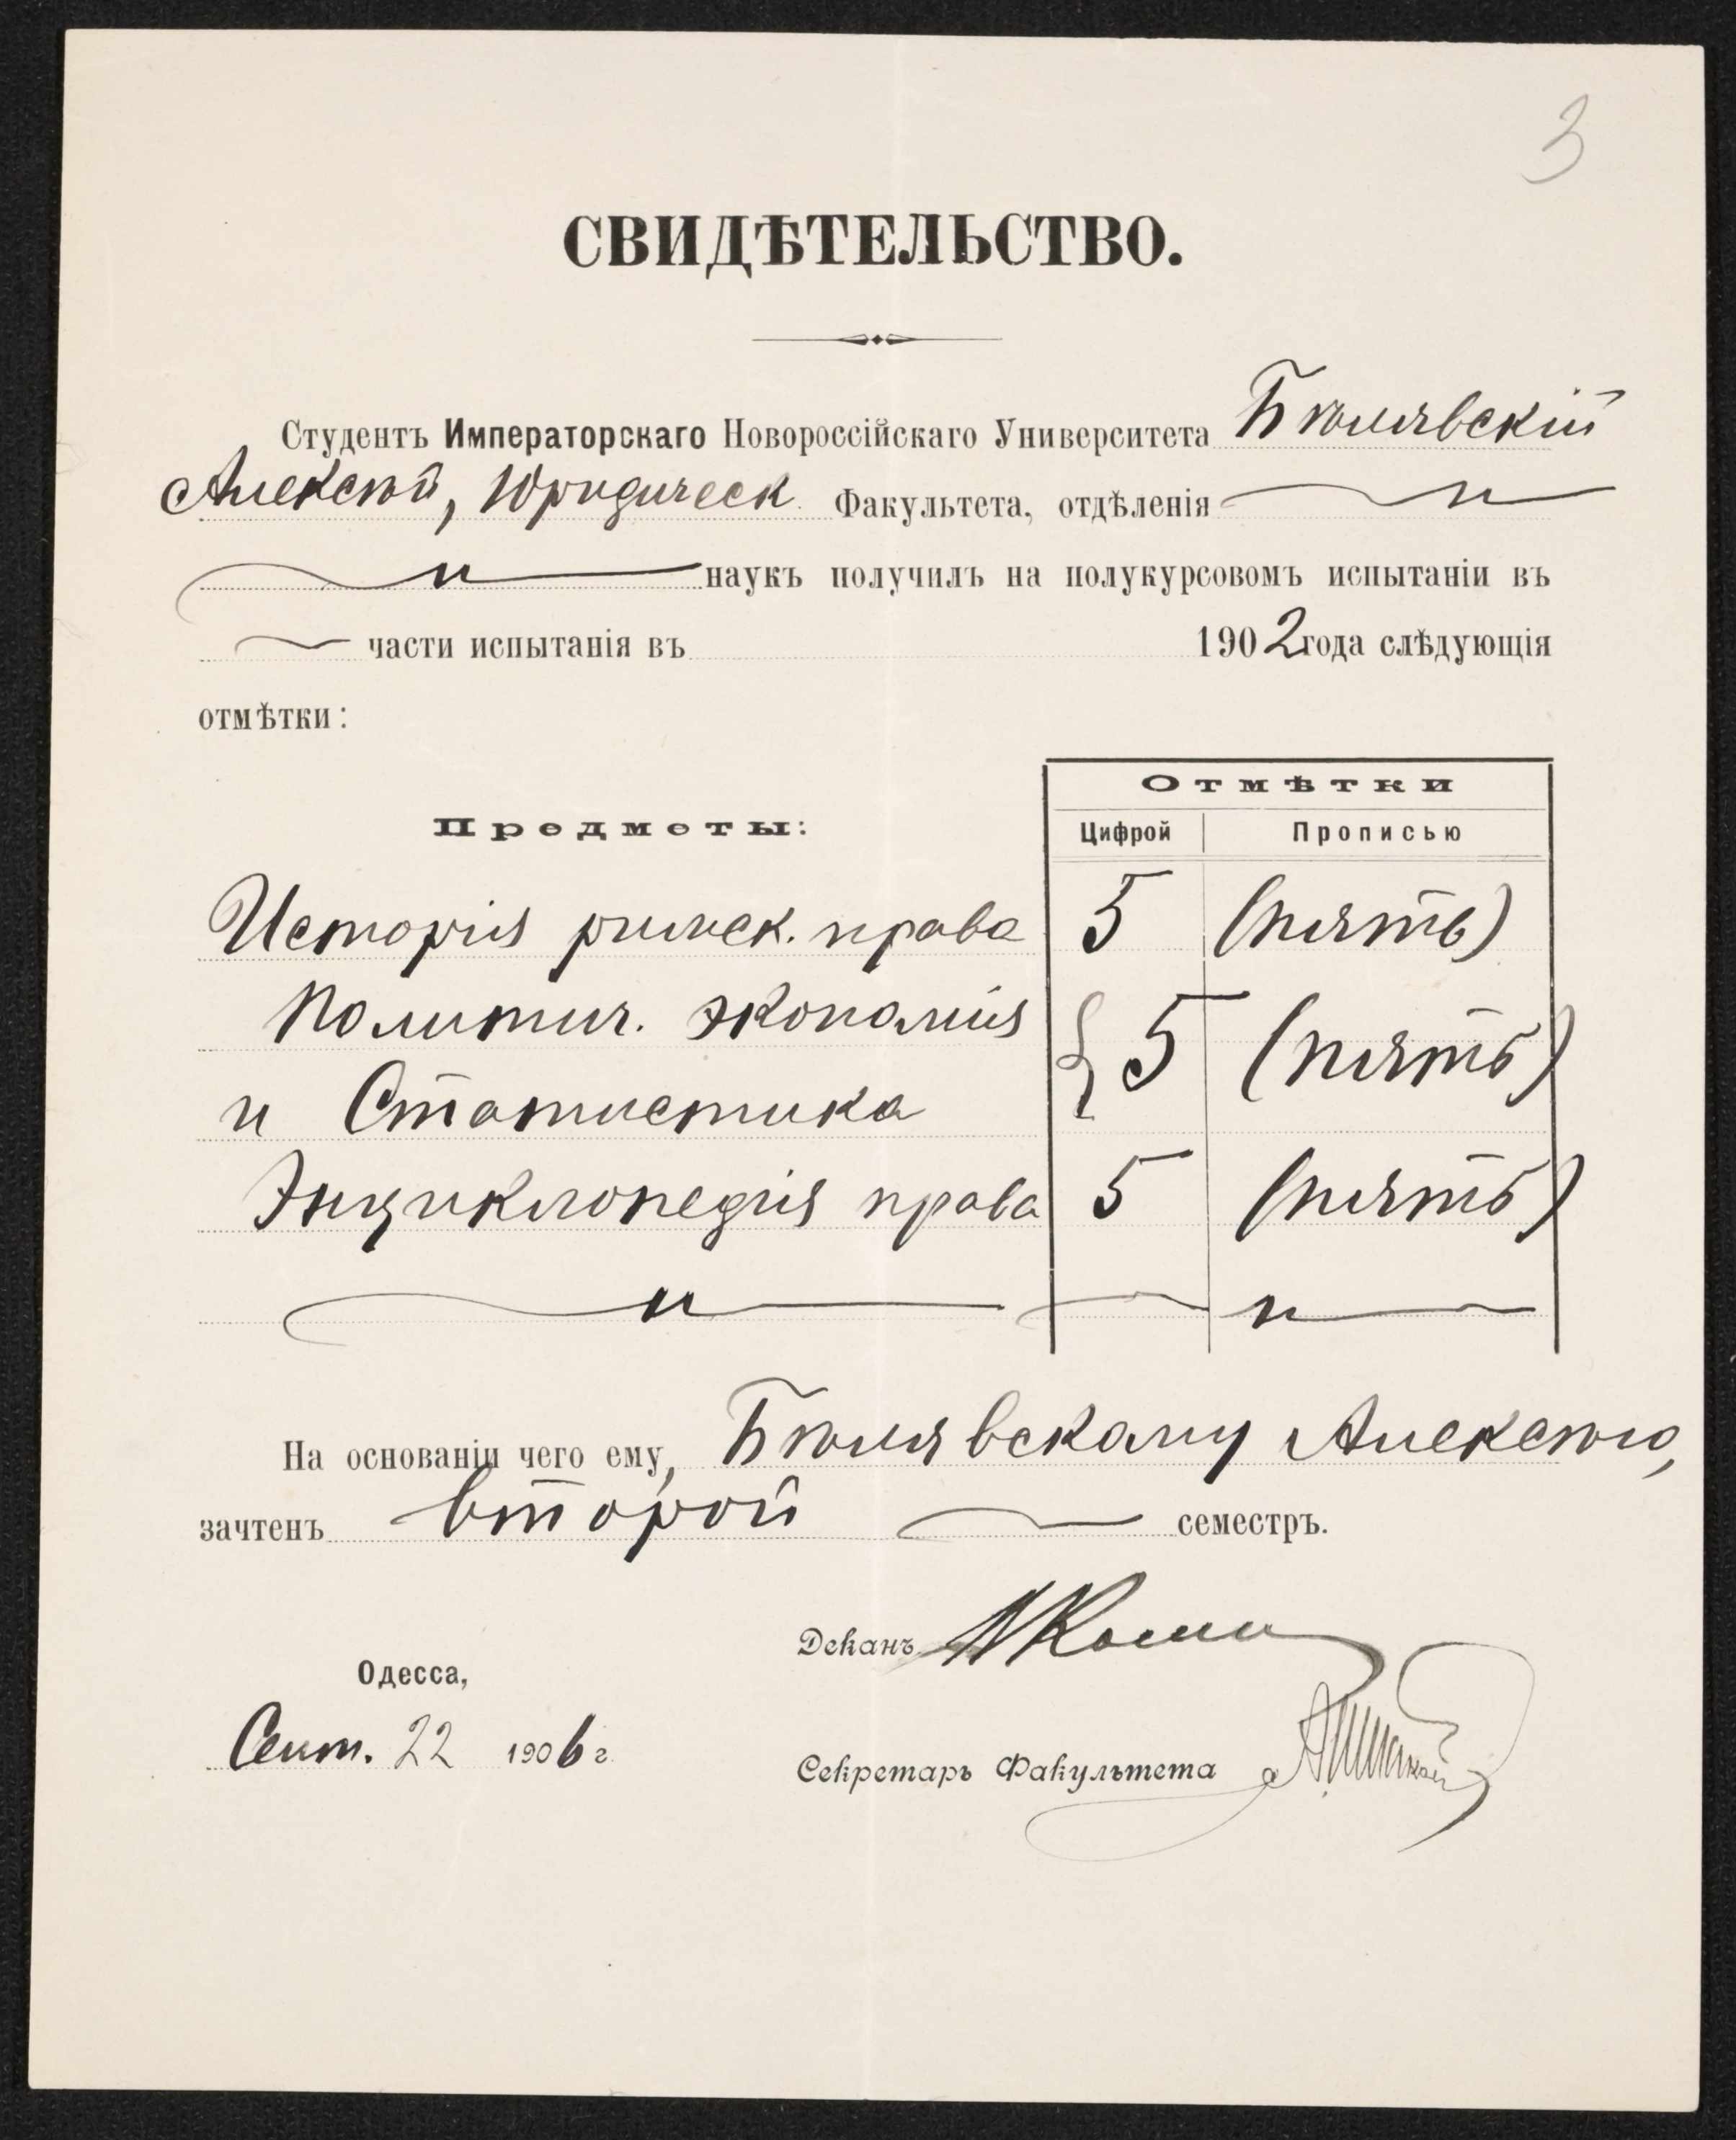 3
СВИДѢТЕЛЬСТВО.
Студентъ Императорскаго Новороссійскаго Университета Бѣлявскій
Алексѣй, Юридическ. Факультета, отдѣленія — „ —
— „ — наукъ получилъ на полукурсовомъ испытаніи въ
— части испытанія въ 1902 года слѣдующія
отмѣтки:
Отмѣтки
Предметы:
Цифрой Прописью
Исторія римск. права 5 (пять)
Политич. экономія { 5 (пять)
и Статистика
Энциклопедія права 5 (пять)
— „ — — „ —
На основаніи чего ему, Бѣлявскому Алексѣю,
зачтенъ второй — семестръ.
Деканъ
Одесса,
Сент. 22 1906 г.
Секретарь Факультета